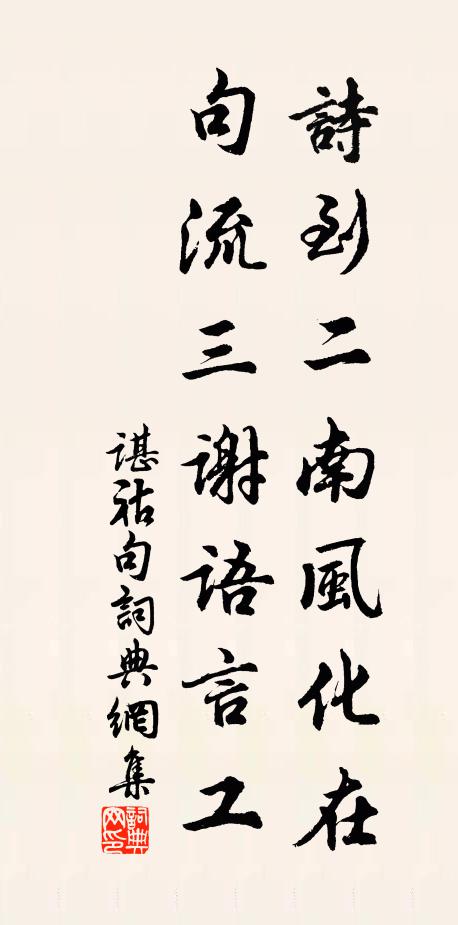 詩到二南風化在
句流三謝語言工
諶祜句詞典網集
詞典網印